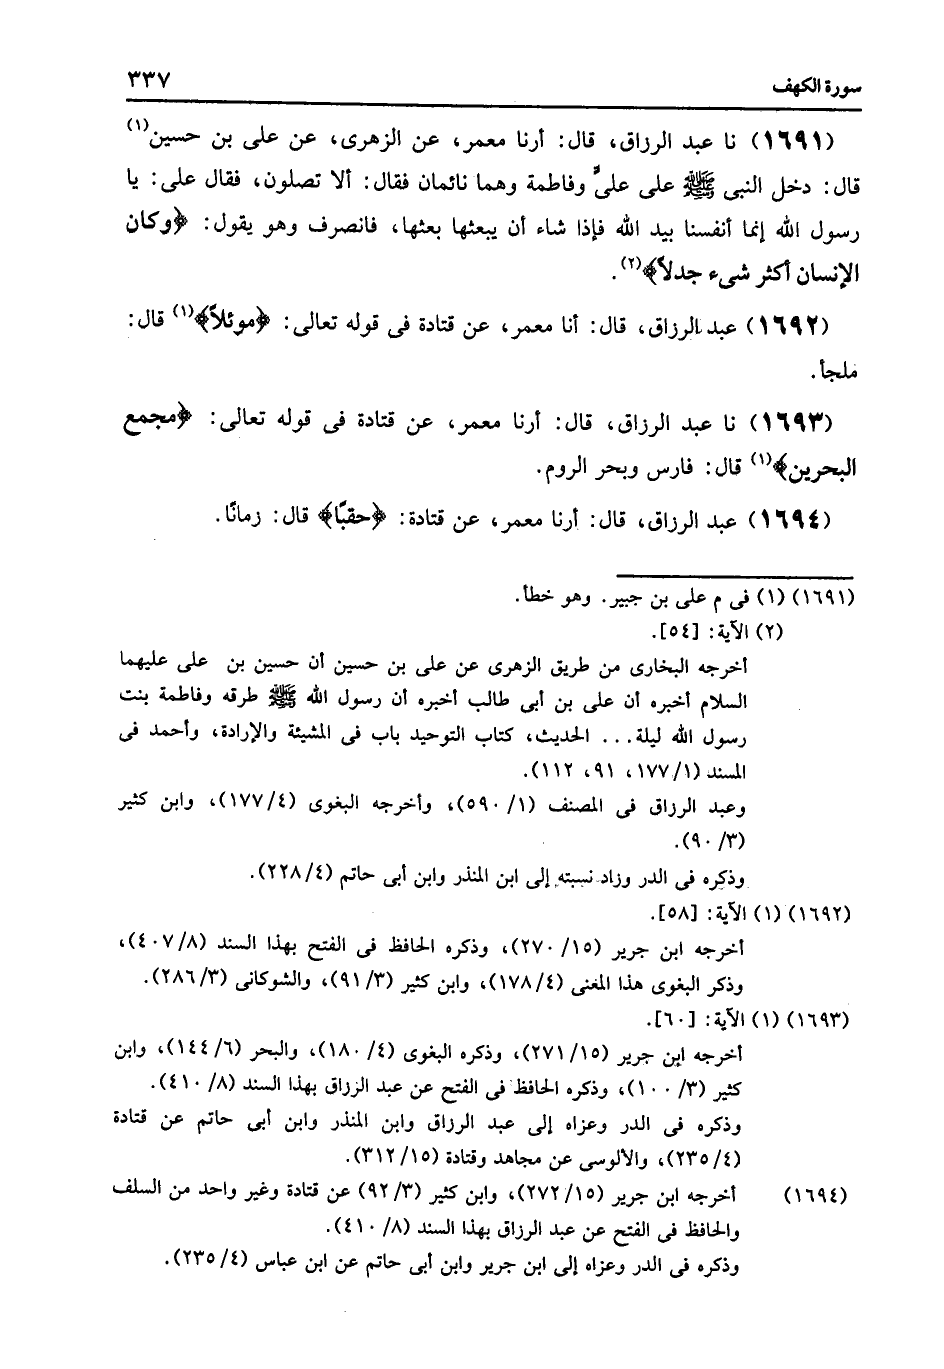 سورة الكهف ٣٣٧
(١٦٩١) نا عبد الرزاق، قال: أرنا معمر، عن الزهرى، عن على بن حسين(١)
قال: دخل النبى ﷺ على علىٍّ وفاطمة وهما نائمان فقال: ألا تصلون، فقال على: يا
رسول الله إنما أنفسنا بيد الله فإذا شاء أن يبعثها بعثها، فانصرف وهو يقول: ﴿وكان
الإنسان أكثر شىء جدلاً﴾(٢).
(١٦٩٢) عبد الرزاق، قال: أنا معمر، عن قتادة فى قوله تعالى: ﴿موئلاً﴾(١) قال:
ملجأ.
(١٦٩٣) نا عبد الرزاق، قال: أرنا معمر، عن قتادة فى قوله تعالى: ﴿مجمع
البحرين﴾(١) قال: فارس وبحر الروم.
(١٦٩٤) عبد الرزاق، قال: أرنا معمر، عن قتادة: ﴿حقبًا﴾ قال: زمانًا.
(١٦٩١) (١) فى م على بن جبير. وهو خطأ.
(٢) الآية: [٥٤].
أخرجه البخارى من طريق الزهرى عن على بن حسين أن حسين بن على عليهما
السلام أخبره أن على بن أبى طالب أخبره أن رسول الله ﷺ طرقه وفاطمة بنت
رسول الله ليلة... الحديث، كتاب التوحيد باب فى المشيئة والإرادة، وأحمد فى
المسند (١/ ١٧٧، ٩١، ١١٢).
وعبد الرزاق فى المصنف (١/ ٥٩٠)، وأخرجه البغوى (٤/ ١٧٧)، وابن كثير
(٣/ ٩٠).
وذكره فى الدر وزاد نسبته إلى ابن المنذر وابن أبى حاتم (٤/ ٢٢٨).
(١٦٩٢) (١) الآية: [٥٨].
أخرجه ابن جرير (١٥/ ٢٧٠)، وذكره الحافظ فى الفتح بهذا السند (٨/ ٤٠٧)،
وذكر البغوى هذا المعنى (٤/ ١٧٨)، وابن كثير (٣/ ٩١)، والشوكانى (٣/ ٢٨٦).
(١٦٩٣) (١) الآية: [٦٠].
أخرجه ابن جرير (١٥/ ٢٧١)، وذكره البغوى (٤/ ١٨٠)، والبحر (٦/ ١٤٤)، وابن
كثير (٣/ ١٠٠)، وذكره الحافظ فى الفتح عن عبد الرزاق بهذا السند (٨/ ٤١٠).
وذكره فى الدر وعزاه إلى عبد الرزاق وابن المنذر وابن أبى حاتم عن قتادة
(٤/ ٢٣٥)، والألوسى عن مجاهد وقتادة (١٥/ ٣١٢).
(١٦٩٤) أخرجه ابن جرير (١٥/ ٢٧٢)، وابن كثير (٣/ ٩٢) عن قتادة وغير واحد من السلف
والحافظ فى الفتح عن عبد الرزاق بهذا السند (٨/ ٤١٠).
وذكره فى الدر وعزاه إلى ابن جرير وابن أبى حاتم عن ابن عباس (٤/ ٢٣٥).